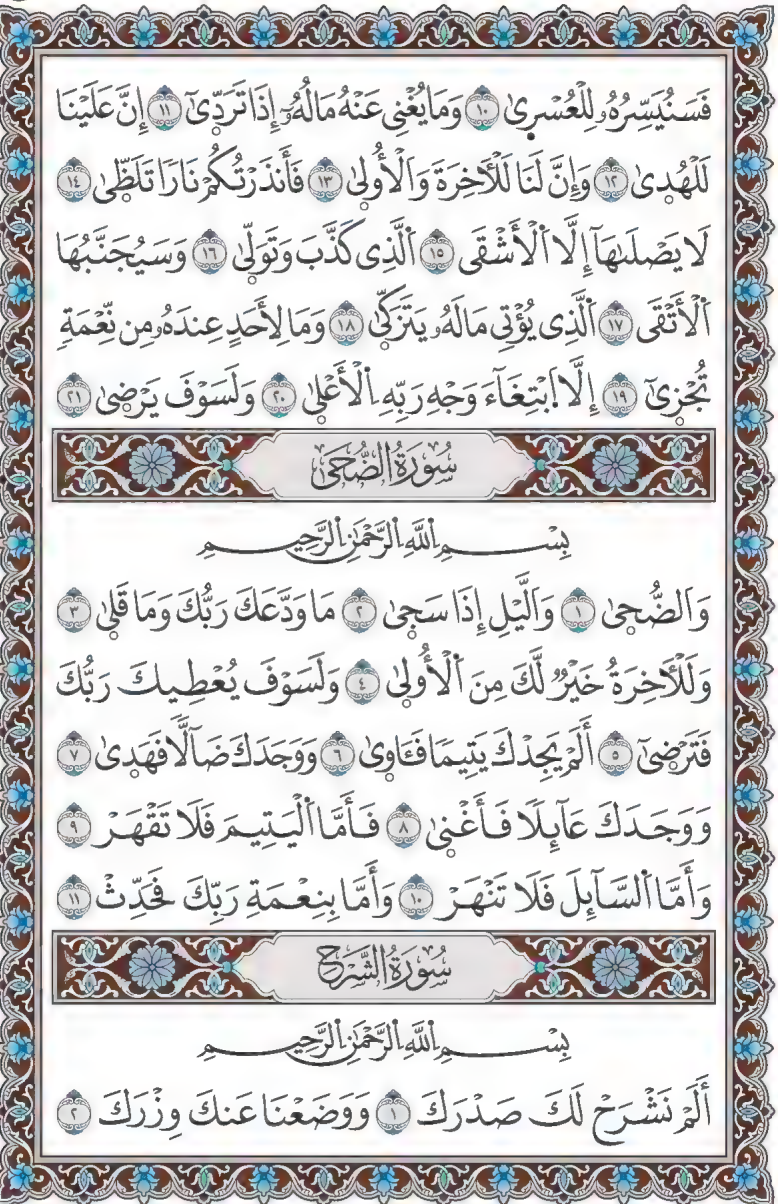 فَسَنُيَسِّرُهُۥ لِلْعُسْرىٰ ١٠ وَمَا يُغْنِى عَنْهُ مَالُهُۥٓ إِذَا تَرَدّىٰٓ ١١ إِنَّ عَلَيْنَا
لَلْهُدىٰ ١٢ وَإِنَّ لَنَا لَلْأَخِرَةَ وَالْأُولىٰ ١٣ فَأَنذَرْتُكُمْ نَارًا تَلَظّىٰ ١٤
لَا يَصْلَىٰهَآ إِلَّا اَلْأَشْقَى ١٥ اَلَّذِى كَذَّبَ وَتَوَلّىٰ ١٦ وَسَيُجَنَّبُهَا
اَلْأَتْقَى ١٧ اَلَّذِى يُؤْتِى مَالَهُۥ يَتَزَكّىٰ ١٨ وَمَا لِأَحَدٍ عِندَهُۥ مِن نِّعْمَةٍ
تُجْزىٰٓ ١٩ إِلَّا اَبْتِغَآءَ وَجْهِ رَبِّهِ اِلْأَعْلىٰ ٢٠ وَلَسَوْفَ يَرْضىٰ ٢١
سُورَةُ الضُّحَىٰ
بِسْمِ اِللَّهِ اِلرَّحْمَٰنِ اِلرَّحِيمِ
وَالضُّحىٰ ١ وَالَّيْلِ إِذَا سَجىٰ ٢ مَا وَدَّعَكَ رَبُّكَ وَمَا قَلىٰ ٣
وَلَلْأَخِرَةُ خَيْرٌ لَّكَ مِنَ اَلْأُولىٰ ٤ وَلَسَوْفَ يُعْطِيكَ رَبُّكَ
فَتَرْضىٰٓ ٥ أَلَمْ يَجِدْكَ يَتِيمًا فَـَٔاوىٰ ٦ وَوَجَدَكَ ضَآلًّا فَهَدىٰ ٧
وَوَجَدَكَ عَآئِلًا فَأَغْنىٰ ٨ فَأَمَّا اَلْيَتِيمَ فَلَا تَقْهَرْ ٩
وَأَمَّا اَلسَّآئِلَ فَلَا تَنْهَرْ ١٠ وَأَمَّا بِنِعْمَةِ رَبِّكَ فَحَدِّثْ ١١
سُورَةُ الشَّرْحِ
بِسْمِ اِللَّهِ اِلرَّحْمَٰنِ اِلرَّحِيمِ
أَلَمْ نَشْرَحْ لَكَ صَدْرَكَ ١ وَوَضَعْنَا عَنكَ وِزْرَكَ ٢